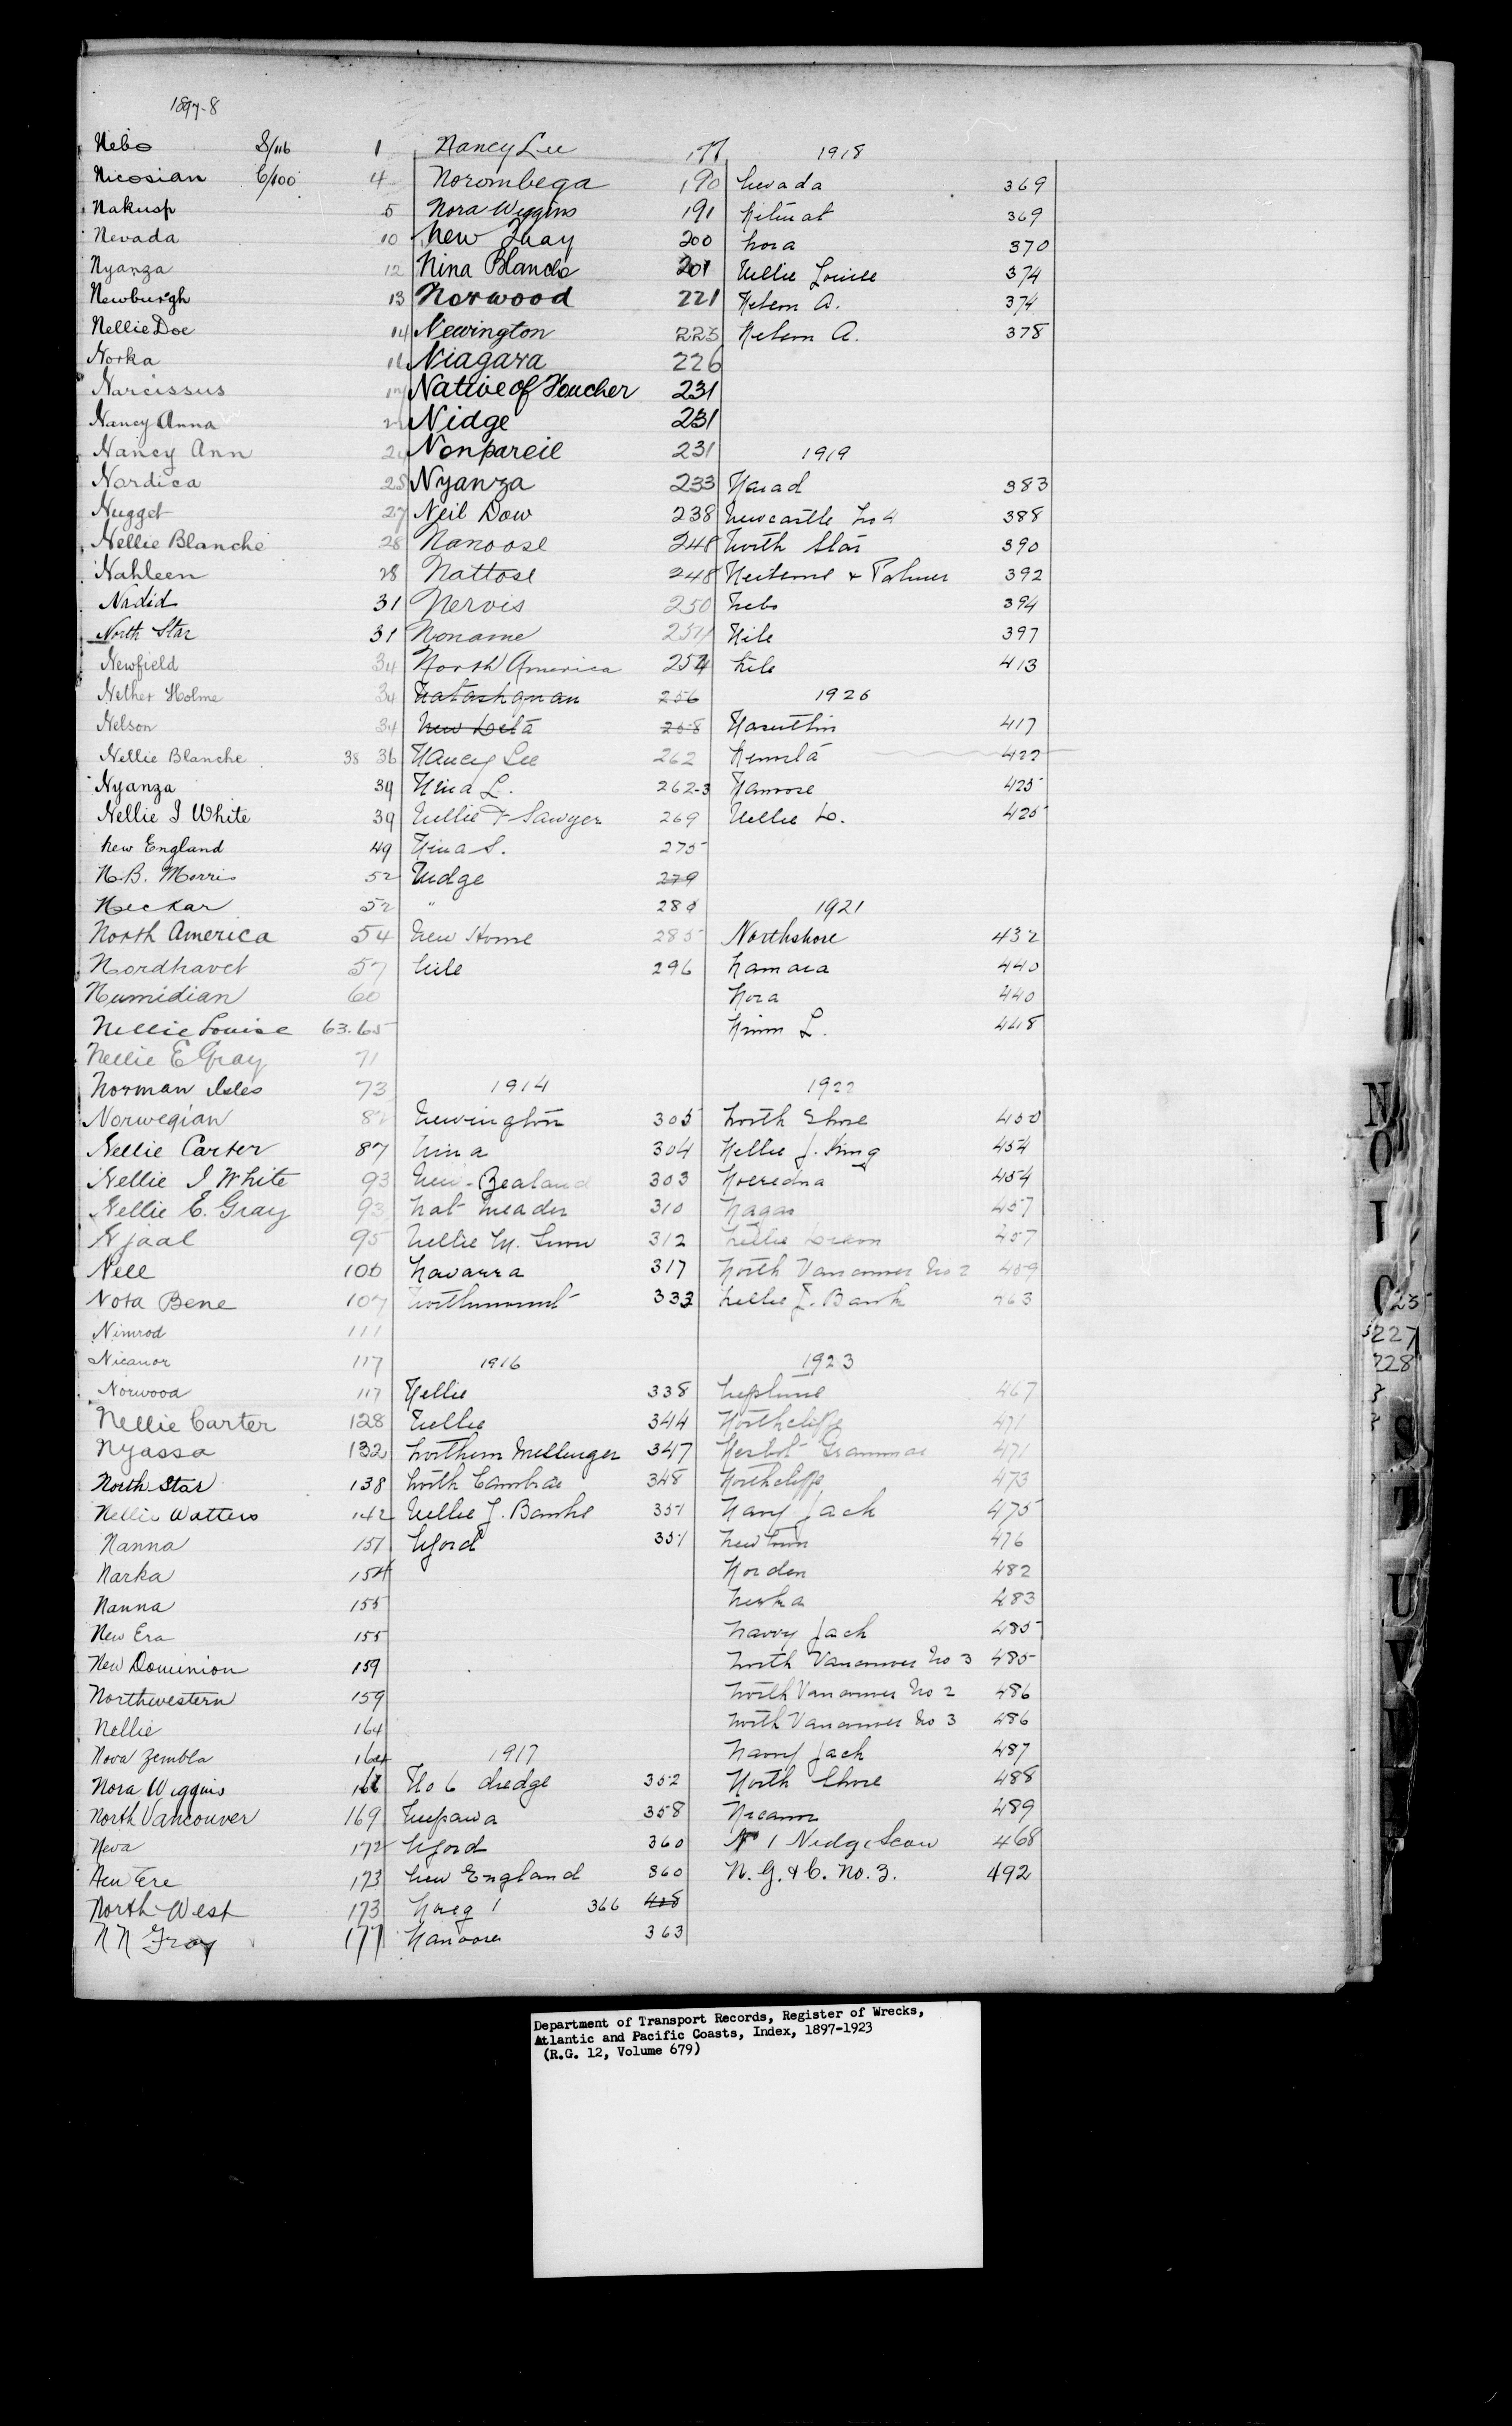 1897-8
Nebo S/116 1
Nicosian C/100 4
Nakusp 5
Nevada 10
Nyanza 12
Newburgh 13
Nellie Doe 14
Norka 16
Narcissus 17
Nancy Anna
Nancy Ann 24
Nordica 25
Nugget 27
Nellie Blanche 28
Nahleen 28
Nadid 31
North Star 31
Newfield 34
Nether Holme 34
Nelson 34
Nellie Blanche 38 36
Nyanza 39
Nellie I White 39
New England 49
N.B. Morris 52
Neckar 52
North America 54
Nordhavet 57
Numidian 60
Nellie Louise 63.65
Nellie E Gray 71
Norman Isles 73
Norwegian 82
Nellie Carter 87
Nellie I White 93
Nellie E. Gray 93
Njaal 95
Nell 106
Nota Bene 107
Nimrod 111
Nicanor 117
Norwood 117
Nellie Carter 128
Nyassa 132
North Star 138
Nellie Watters 142
Nanna 151
Narka 154
Nanna 155
New Era 155
New Dominion 159
Northwestern 159
Nellie 164
Nova Zembla 164
Nora Wiggins
North Vancouver 169
Neva 172
New Ere 173
North West 173
N N Gray 177
Nancy Lee 177
Norombega 190
Nora Wiggins 191
New Quay 200
Nina Blanche 201
Norwood 221
Newington 223
Niagara 226
Native of Voucher 231
Nidge 231
Nonpareil 231
Nyanza 233
Neil Dow 238
Nanoose 248
Nattose 248
Nervis 250
Noname 251
North America 254
Natashquan 256
New Delta 258
Nancy Lee 262
Nina L. 262-3
Nellie F Sawyer 269
Nina S. 275
Nidge 279
" 280
New Home 285
Nile 296
1914
Newington 305
Nina 304
New-Zealand 303
Nat Meader 310
Nellie M. Snow 312
Navarra 317
Northmount 333
1916
Nellie 338
Nellie 344
Northern Messenger 347
North Cambria 348
Nellie J. Banks 351
Njord 351
1917
No 6 dredge 352
Neepawa 358
Njord 360
New England 360
Noreg 1 366 408
Nanoose 363
1918
Nevada 369
Kitmat 369
Nora 370
Nellie Louise 374
Nelson A. 374
Nelson A. 378
1919
Narad 383
Newcastle No 4 388
North Star 390
392
Nebo 394
Nile 397
Nile 413
1920
417
422
Nanoose 425
Nellie D. 425
1921
Northshore 432
Namara 440
Nora 440
L. 448
1922
North Shore 450
Nellie J. King 454
Noeredna 454
Nagas 457
Nellie Dixon 457
North Vancouver No 2 459
Nellie J. Bank 463
1923
Neptune 467
Northcliffe 471
471
Northcliffe 473
Navy Jack 475
Newtown 476
Norden 482
Newka 483
Navvy Jack 485
North Vancouver No 3 485
North Vancouver No 2 486
North Vancouver No 3 486
Navvy Jack 487
North Shore 488
Nicanor 489
No 1 Nidge Scow 468
N. G. & C. No. 3. 492
N
O
S
T
U
V
227
228
Department of Transport Records, Register of Wrecks,
Atlantic and Pacific Coasts, Index, 1897-1923
(R.G. 12, Volume 679)